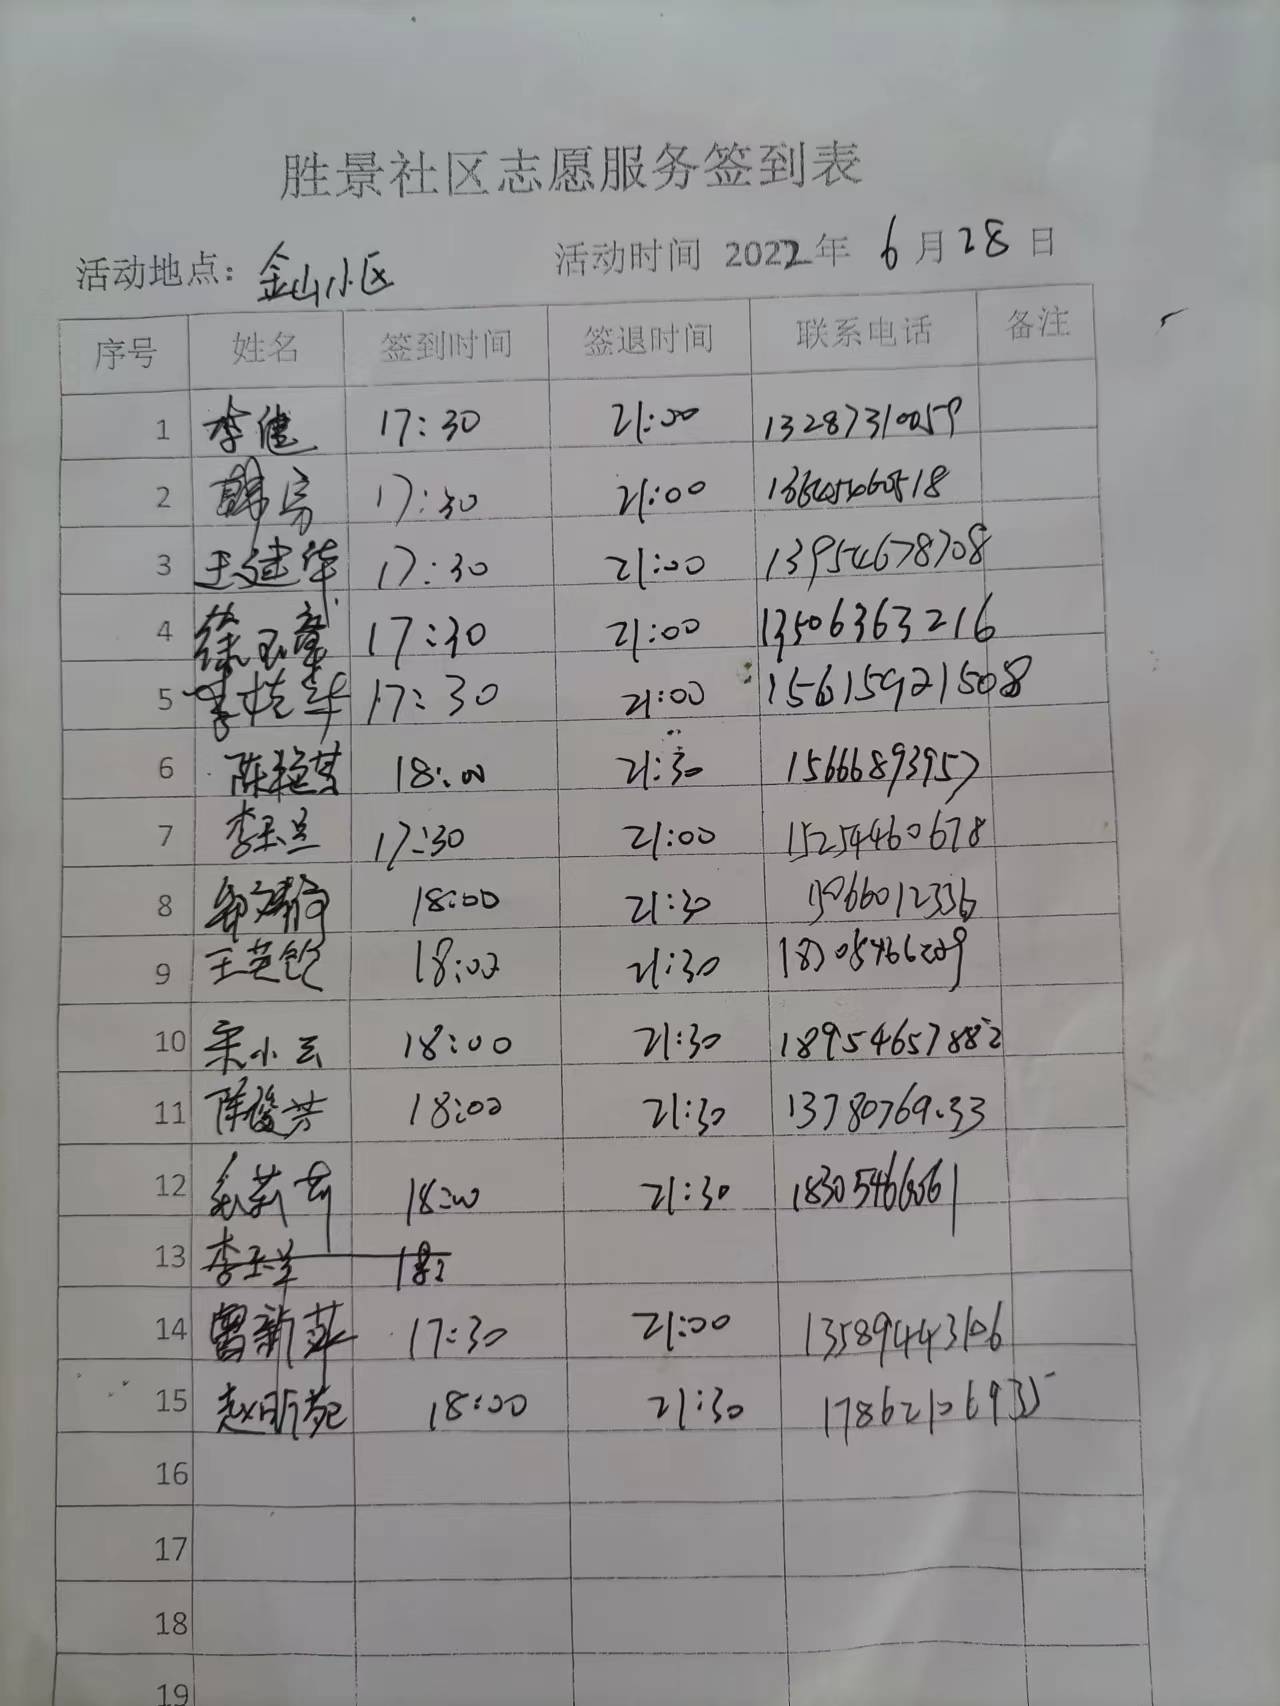 胜景社区志愿服务签到表
活动地点：金山小区 活动时间 2022年 6月28日
序号 姓名 签到时间 签退时间 联系电话 备注
1 李健 17:30 21:00 13287310059
2 韩 17:30 21:00
3 王建华 17:30 21:00 13954678708
4 徐玉 17:30 21:00 13506363216
5 李桂华 17:30 21:00 156159921508
6 陈艳 18:00 21:30 15666893957
7 李玉兰 17:30 21:00 15254460678
8 18:00 21:30 15066012336
9 王英 18:00 21:30 18705466209
10 宋小云 18:00 21:30 18954657882
11 陈俊芳 18:00 21:30
12 莉 18:00 21:30
13 李玉兰 18:
14 曹新萍 17:30 21:00 13589443106
15 赵昕苑 18:00 21:30 17862106935
16
17
18
19